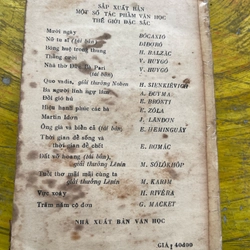 SẮP XUẤT BẢN
MỘT SỐ TÁC PHẨM VĂN HỌC
THẾ GIỚI ĐẶC SẮC
Mười ngày BÔCAXIÔ
Nữ tu sĩ (tái bản) ĐIĐƠRÔ
Bông huệ trong thung H. BALZĂC
Thằng cười V. HUYGÔ
Nhà thờ Đức Pari V. HUYGÔ
(tái bản)
Quo vadis, giải thưởng Nobem H. SIENKIÊVICH
Ba người lính ngự lâm A. ĐUYMA
Đồi gió hú E. BRONTI
Hiệu hạnh phúc các bà E. ZÔLA
Martin Iđơn J. LANĐƠN
Ông già và biển cả (tái bản) E. HEMINGUÂY
Thời gian để sống và
thời gian để chết E. RƠMÁC
Đất vỡ hoang (tái bản),
giải thưởng Lênin M. SÔLÔKHỐP
Tuổi thơ mãi mãi cùng ta
giải thưởng Lênin M. KARIM
Vực xoáy H. RIVÊRA
Trăm năm cô đơn G. MACKET
NHÀ XUẤT BẢN VĂN HỌC
GIÁ: 40đ00